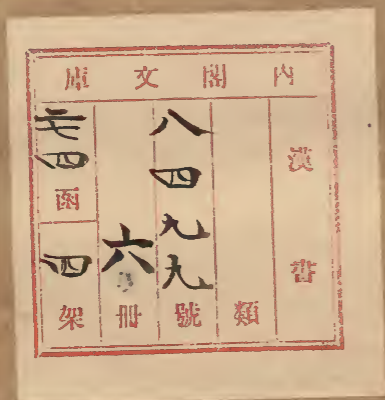 内閣文庫
漢書
類
八四九九號
六冊
二七四函
四架